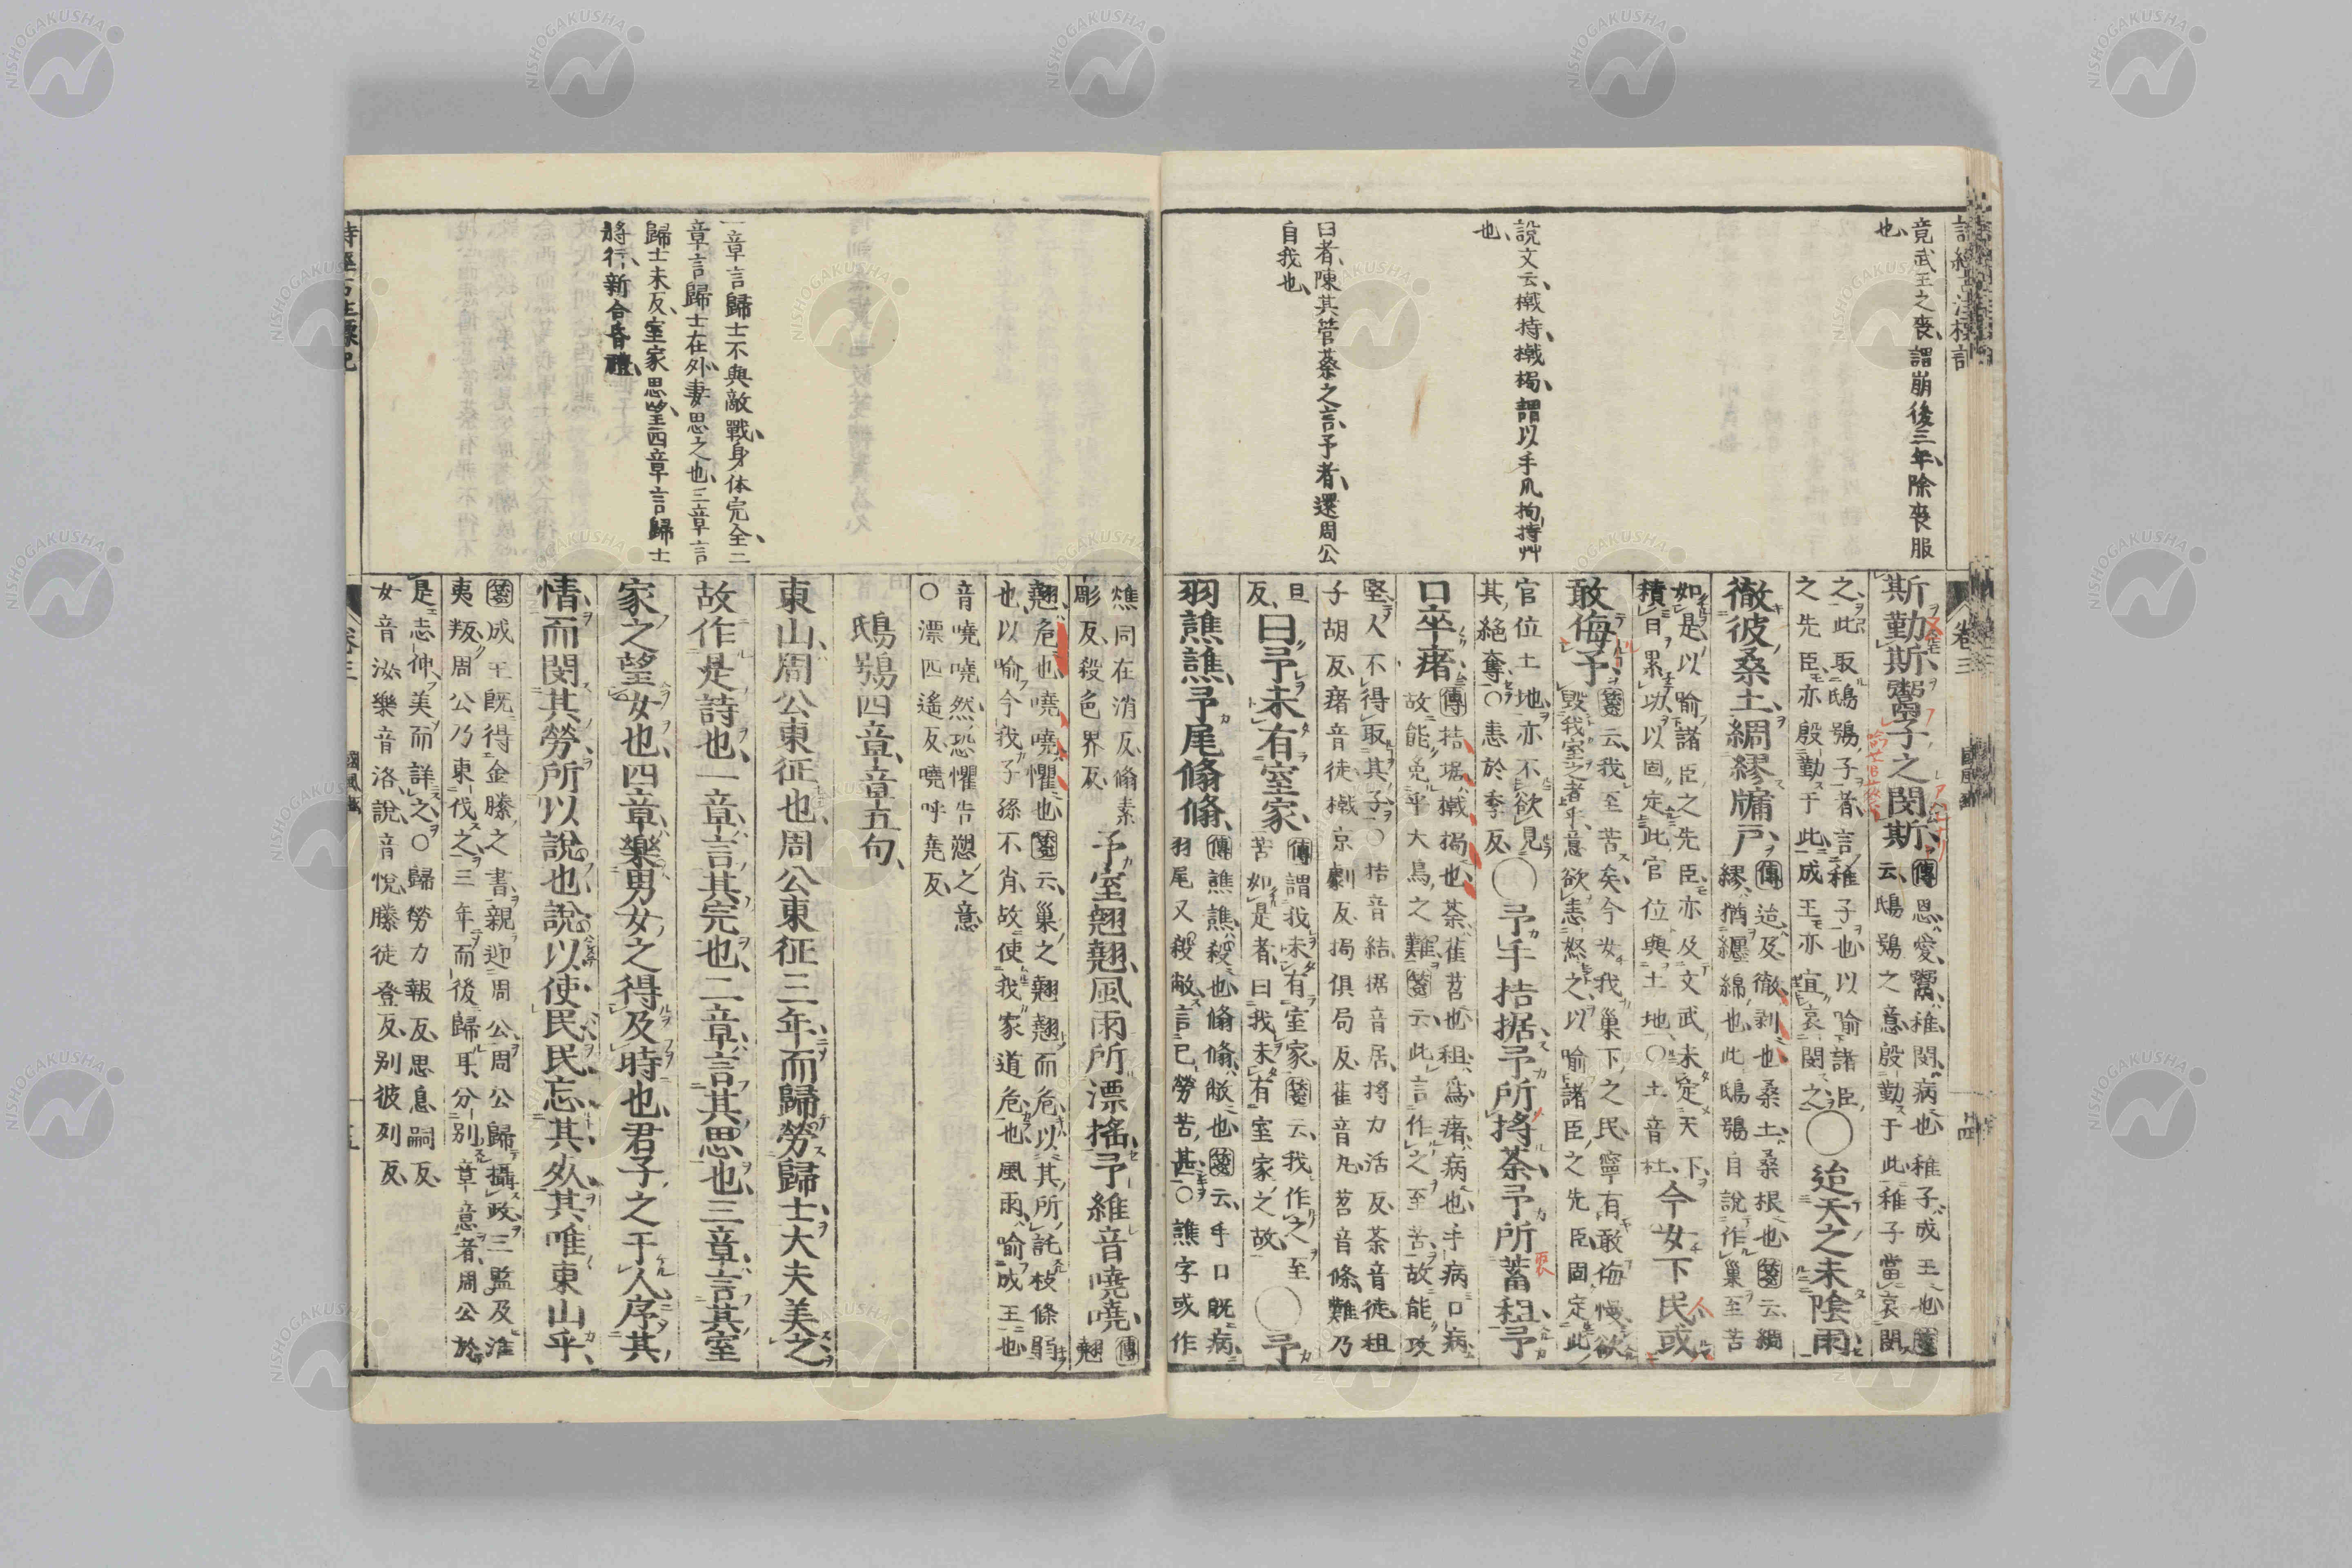 竟武王之喪、謂崩後三年、除喪服
也、
説文云、撠持、撠挶、謂以手爪拘持艸
也、
曰者、陳其管蔡之言、予者、還周公
自我也、
卷三
斯勤斯、鬻子之閔斯、
傳恩、愛、鬻、稚、閔、病也、稚子、成王也、箋
云、鴟鴞之意、殷勤于此、稚子當哀閔
之、此取鴟鴞子者、言稚子也、以喻諸臣
之先臣、亦殷勤于此、成王亦宜哀閔之、
○迨天之未陰雨、
徹彼桑土、綢繆牖戸、
傳迨、及、徹、剥也、桑土、桑根也、箋云、綢
繆、猶纏綿也、此鴟鴞自說作巢至苦
如是、以喻諸臣之先臣、亦及文武未定天下、
積日累功、以固定此官位與土地、○土音杜、
今女下民、或
敢侮予、
箋云、我至苦矣、今女我巢下之民、寧有敢侮慢、欲
毀我室之者乎、意欲恚怒之、以喻諸臣之先臣、固定此
官位土地、亦不欲見
其絕奪、○恚於季反、
○予手拮据、予所捋荼、予所蓄租、予
口卒瘏、
傳拮据、撠挶也、荼、萑苕也、租、爲、瘏、病也、手病口病、
故能免乎大鳥之難、箋云、此言作之至苦、故能攻
堅、人不得取其子、○拮音結、据音居、捋力活反、荼音徒、租
子胡反、瘏音徒、撠京劇反、挶俱局反、萑音丸、苕音條、難乃
旦
反、
曰予未有室家、
傳謂我未有室家、箋云、我作之至
苦如是者、曰我未有室家之故、
○予
羽譙譙、予尾翛翛、
傳譙譙、殺也、翛翛、敝也、箋云、手口既病、
羽尾又殺敝、言己勞苦甚、○譙字或作
燋、同在消反、翛素
彫反、殺色界反、
予室翹翹、風雨所漂搖、予維音嘵嘵、
傳
翹
翹、危也、嘵嘵、懼也、箋云、巢之翹翹而危、以其所託枝條弱
也、以喻今我子孫不肖、故使我家道危也、風雨、喻成王也、
音嘵嘵然、恐懼告愬之意、
○漂匹遙反、嘵呼堯反、
鴟鴞四章、章五句、
東山、周公東征也、周公東征三年、而歸勞歸士、大夫美之、
故作是詩也、一章、言其完也、二章、言其思也、三章、言其室
家之望女也、四章、樂男女之得及時也、君子之于人、序其
情而閔其勞、所以說也、說以使民、民忘其死、其唯東山乎、
箋成王既得金縢之書、親迎周公、周公歸攝政、三監及淮
夷叛、周公乃東伐之、三年而後歸耳、分別章意者、周公於
是志伸、美而詳之、○歸勞力報反、思息嗣反、
女音汝、樂音洛、說音悅、縢徒登反、別彼列反、
一章言歸士不與敵戰、身体完全、二
章言歸士在外、妻思之也、三章言
歸士未反、室家思望、四章言歸士
將行、新合昏禮、